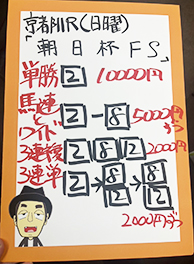 京都11R(日曜)
「朝日杯FS」
単勝 2 10000円
馬連とワイド 2-8 5000円ずつ
3連複 2 8 12 2000円
3連単 2→8 12→8 12
2000円ずつ